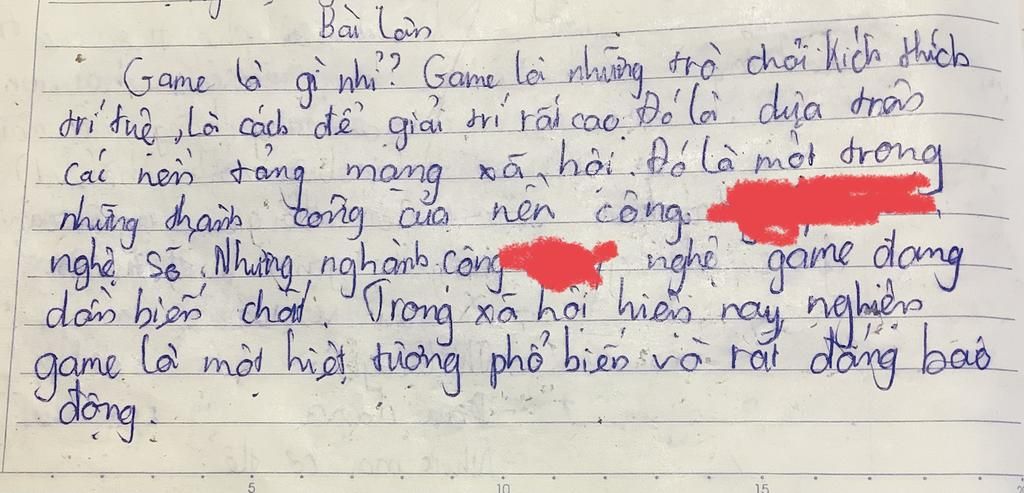 Bài làm
Game là gì nhỉ? Game là những trò chơi kích thích
trí tuệ, là cách để giải trí rất cao. Đó là dựa trên
các nền tảng mạng xã hội. Đó là một trong
những thành công của nền công
nghệ số. Nhưng nghành công nghệ game đang
dần biến chất. Trong xã hội hiện nay nghiện
game là một hiệt tường phổ biến và rất đáng báo
động.
5 10 15